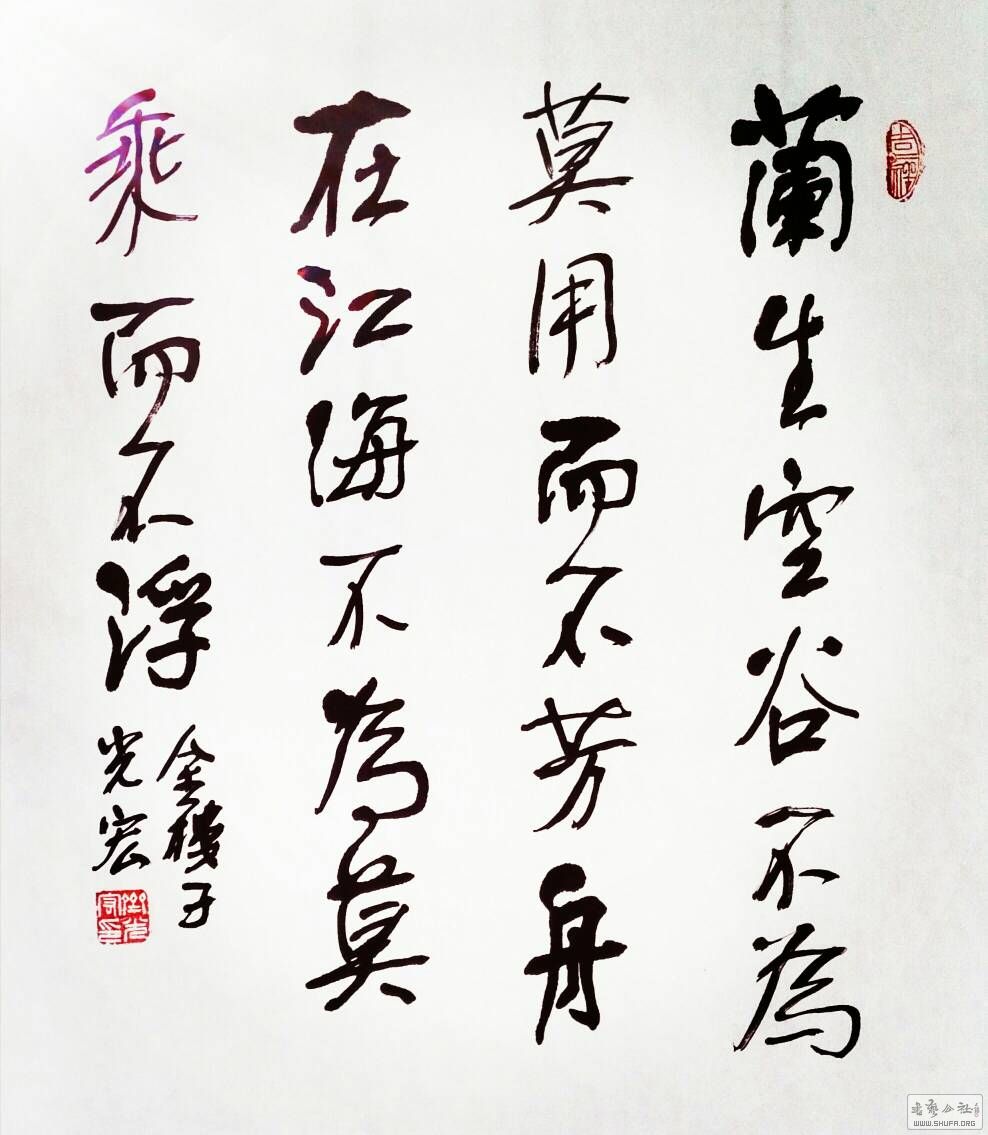 蘭生空谷不為
莫用而不芳舟
在江海不為莫
乘而不浮
金樓子
光宏
吉祥
書藝公社
WWW.SHUFA.ORG